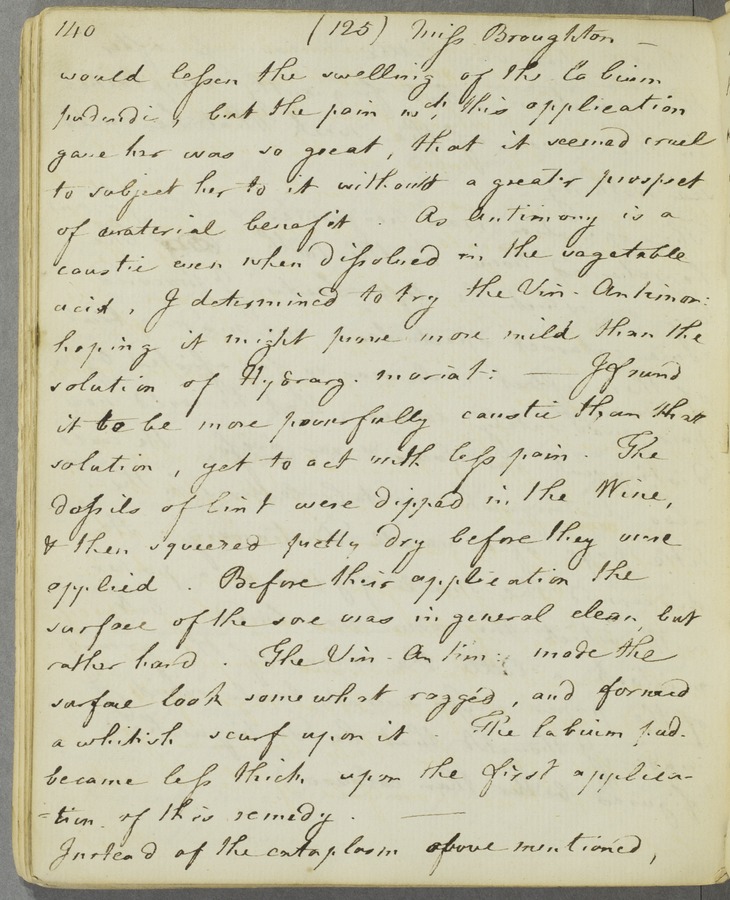 140 (125) Miss Broughton —
would lessen the swelling of the Labium
pudendi, but the pain wch. this application
gave her was so great, that it seemed cruel
to subject her to it without a greater prospect
of material benefit . As Antimony is a
caustic even when dissolved in the vegetable
acid, I determined to try the Vin - Antimon:
hoping it might prove more mild than the
solution of Hydrarg. muriat: — I found
it to be more powerfully caustic than that
solution, yet to act with less pain . The
dossils of lint were dipped in the Wine,
& then squeezed pretty dry before they were
applied . Before this application the
surface of the sore was in general clean, but
rather hard . The Vin - Antim: made the
surface look somewhat ragged, and formed
a whitish scurf upon it . The labium pud.
became less thick upon the first applica-
-tion of this remedy . —
Instead of the cataplasm above mentioned,